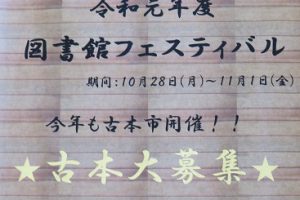 令和元年度
図書館フェスティバル
期間:10月28日(月)～11月1日(金)
今年も古本市開催!!
★古本大募集★